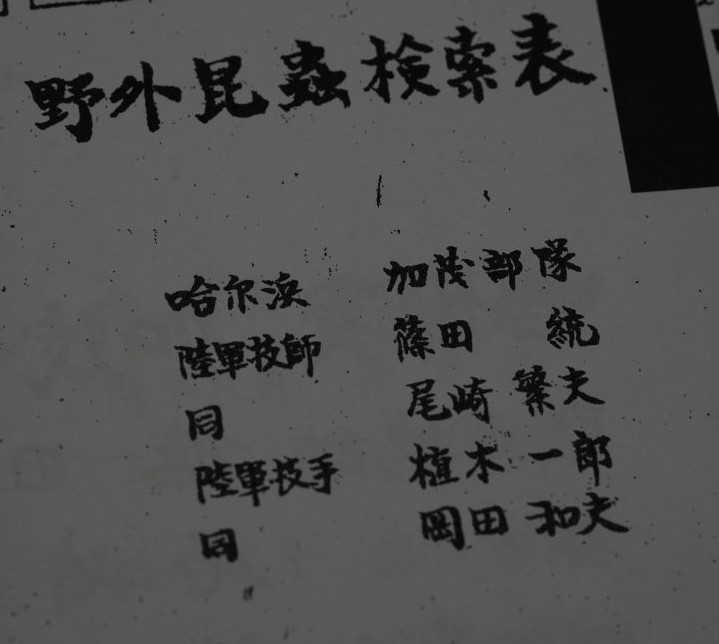 野外昆蟲検索表
哈尔浜 加茂部隊
陸軍技師 篠田 統
同 尾崎 繁夫
陸軍技手 植木 一郎
同 岡田 和夫